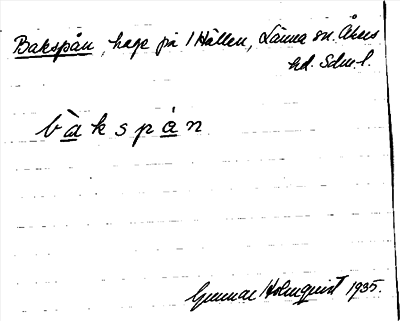 Bakspån, hage på 1 Hållen, Länna sn. Åkers
hd. Sdm.l.
bàkspån
Gunnar Holmquist 1935.